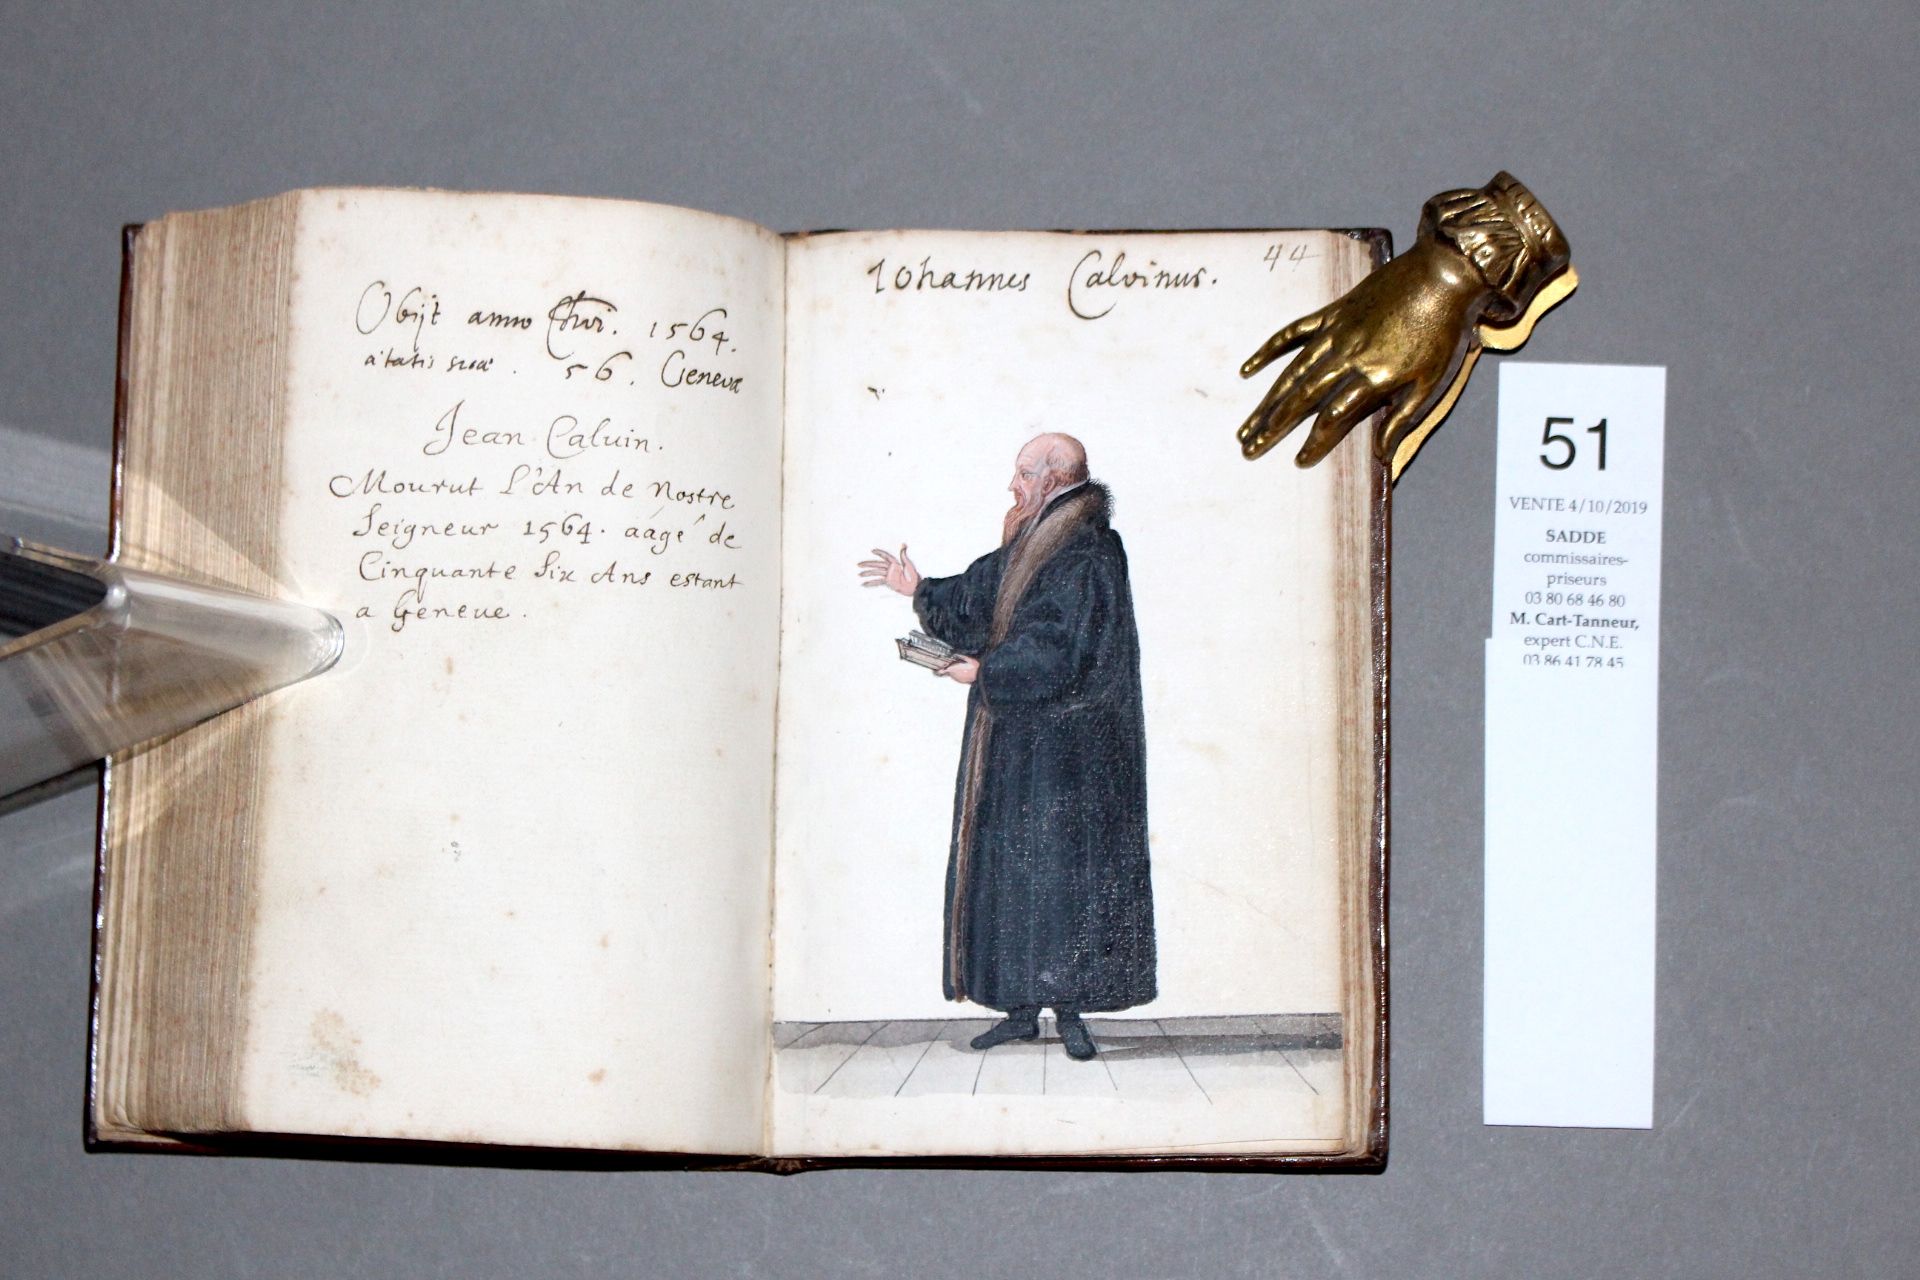 Obijt anno Chri. 1564.
ætatis suæ. 56. Genevæ
Jean Caluin.
Mourut L'An de Nostre
Seigneur 1564. aagé de
Cinquante Six Ans estant
a Geneue.
Iohannes Calvinus.
44
51
VENTE 4/10/2019
SADDE
commissaires-
priseurs
03 80 68 46 80
M. Cart-Tanneur,
expert C.N.E.
03 86 41 78 45